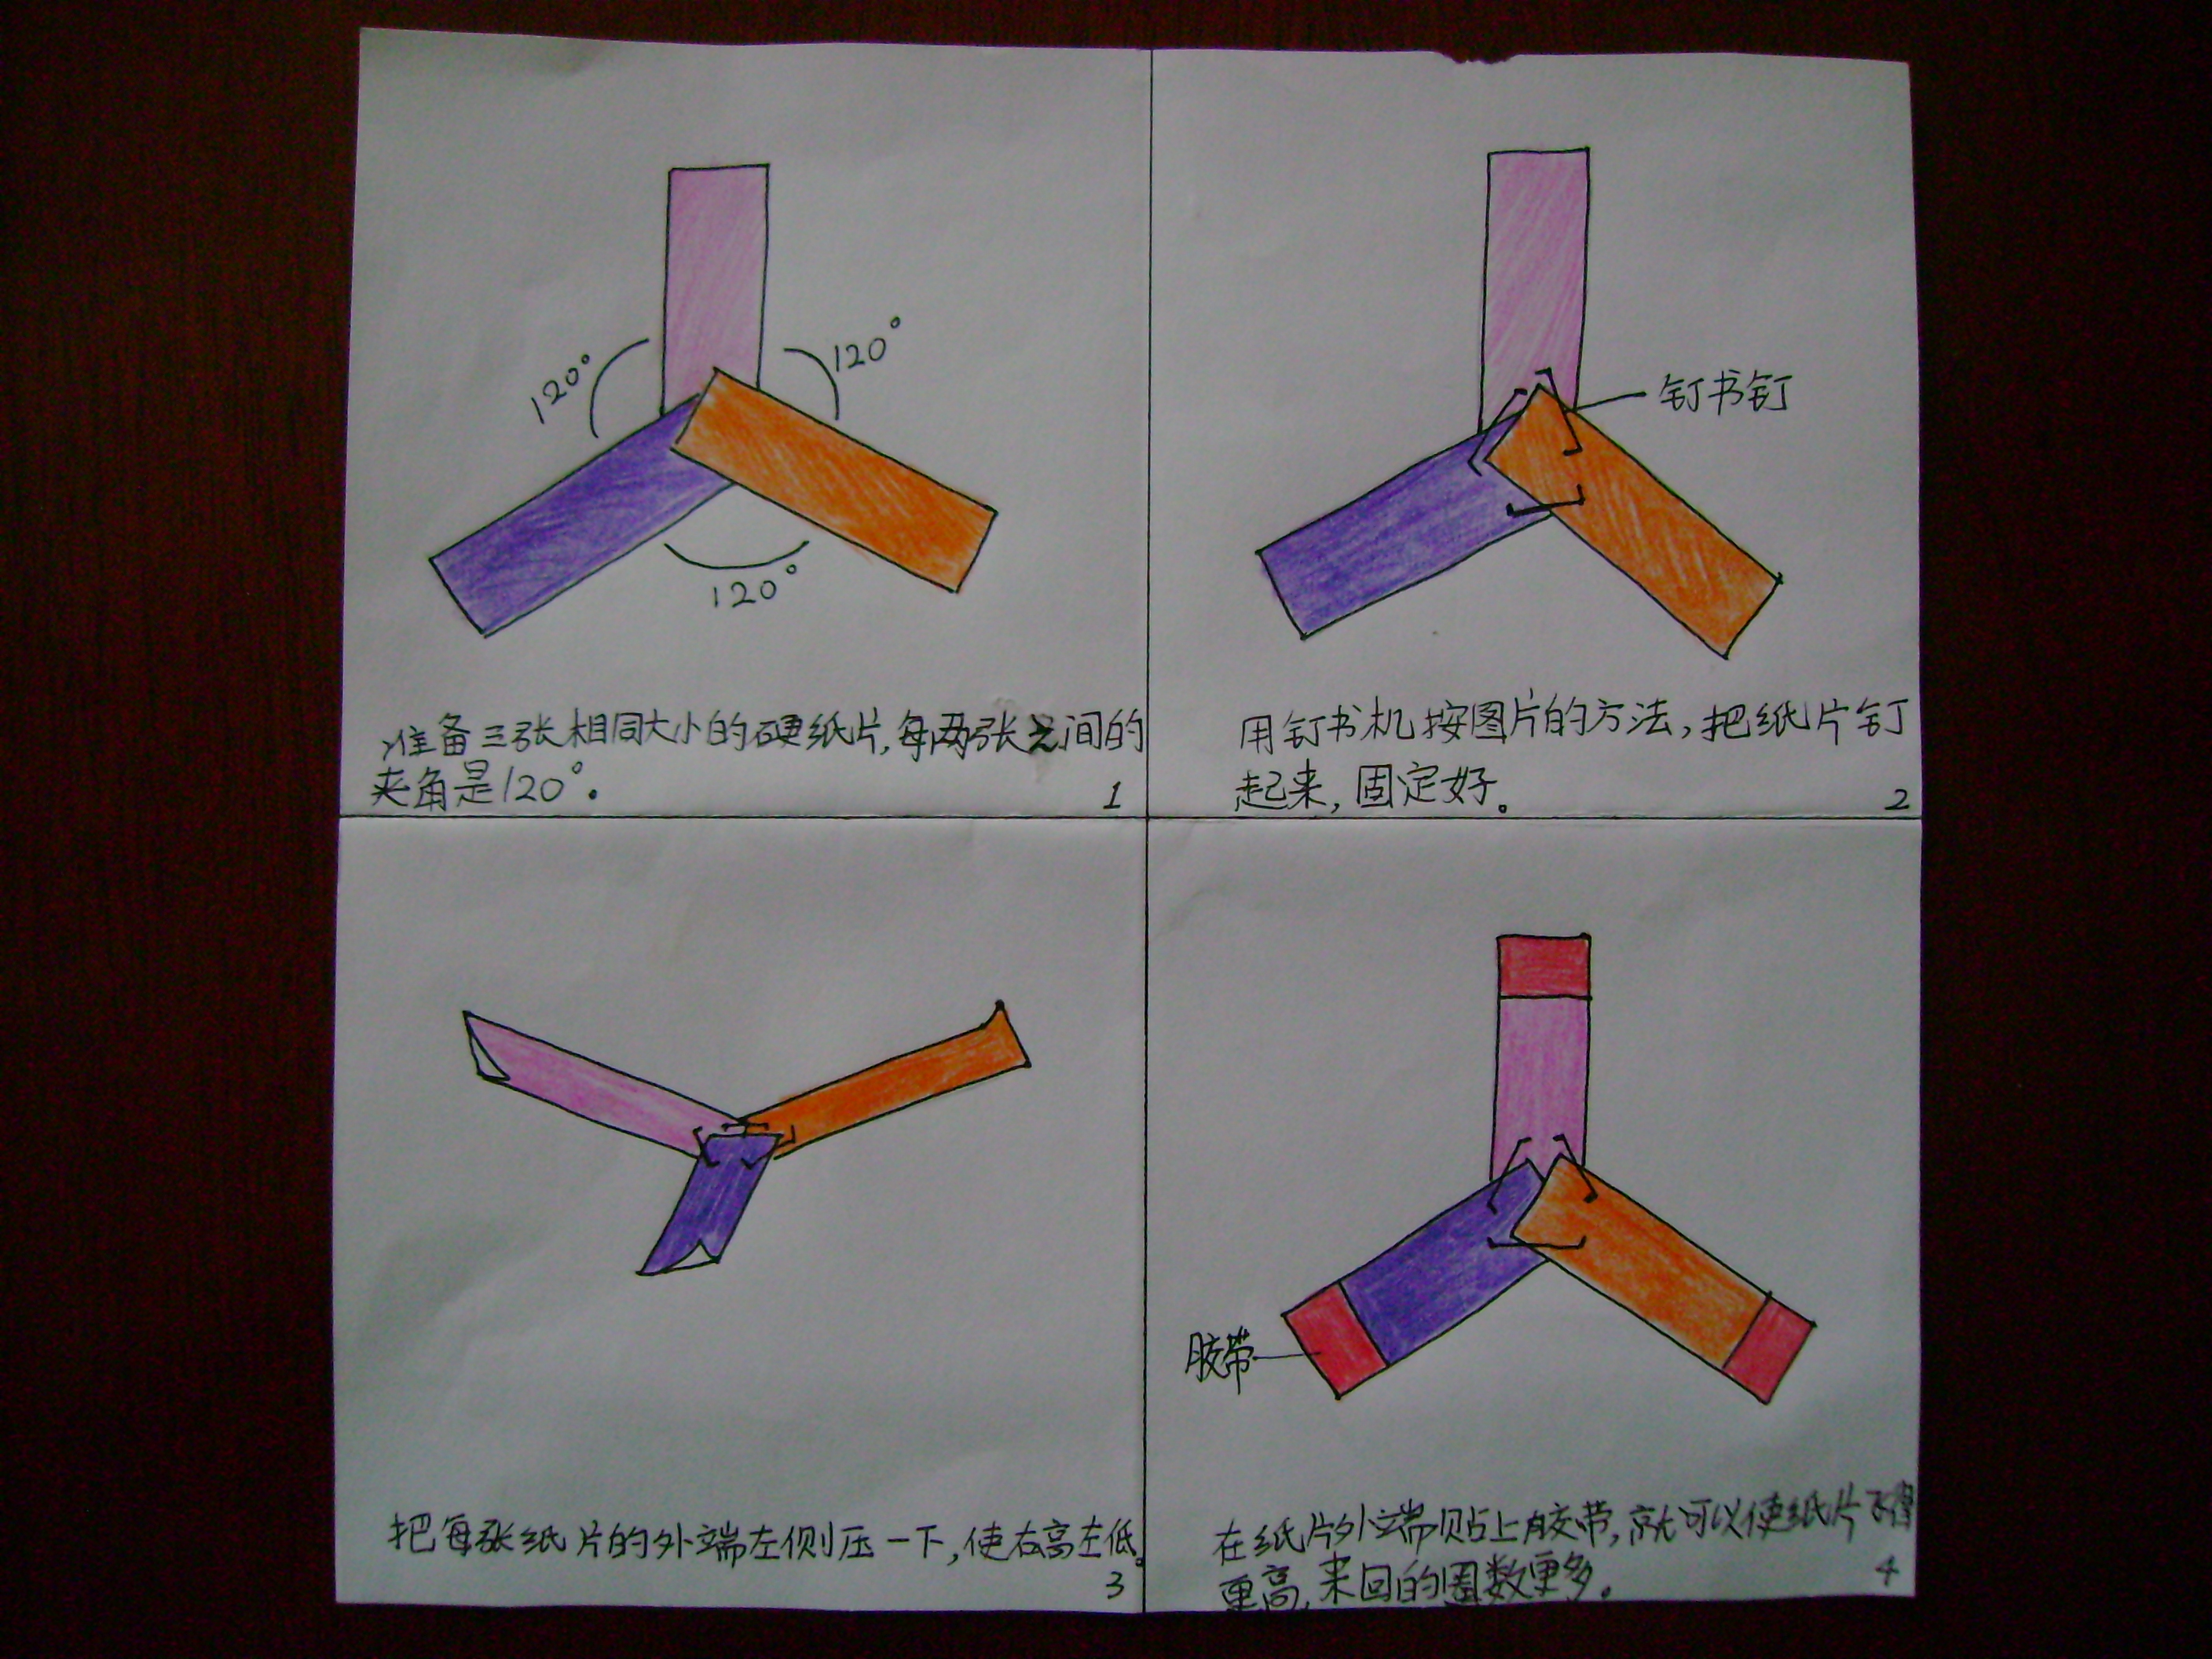 120°
120°
120°
准备三张相同大小的硬纸片,每两张之间的
夹角是120°.
1
钉书钉
用钉书机按图片的方法,把纸片钉
起来,固定好。
2
把每张纸片的外端左侧压一下,使右高左低。
3
胶带
在纸片外端贴上胶带,就可以使纸片飞得
更高,来回的圈数更多.
4